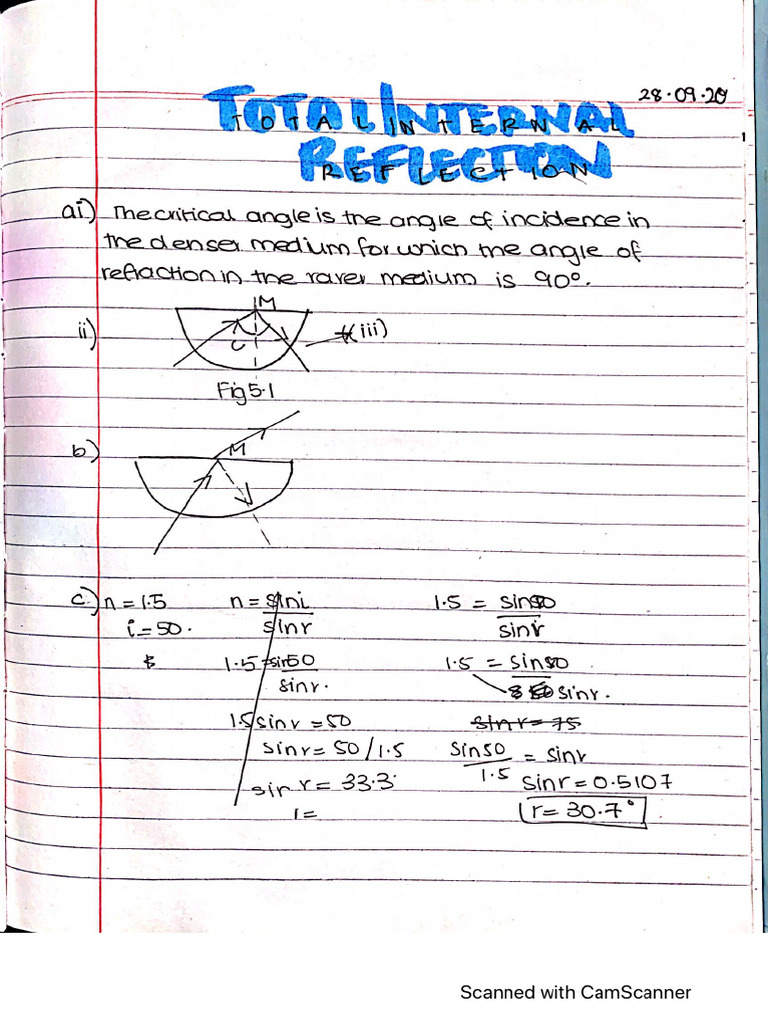 28.09.20
TOTAL INTERNAL
REFLECTION
ai) The critical angle is the angle of incidence in
the denser medium for which the angle of
refraction in the rarer medium is 90°.
ii)
M
C
(iii)
Fig 5.1
b)
M
c.) n = 1.5 n = sin i / sin r 1.5 = sin50 / sin r
i = 50. 1.5 = sin50 / sin r. 1.5 = sin50 / sin r.
1.5 sin r = 50 sin r = 75
sin r = 50 / 1.5 sin50 / 1.5 = sin r
sin r = 33.3 sin r = 0.5107
r = 30.7°
Scanned with CamScanner